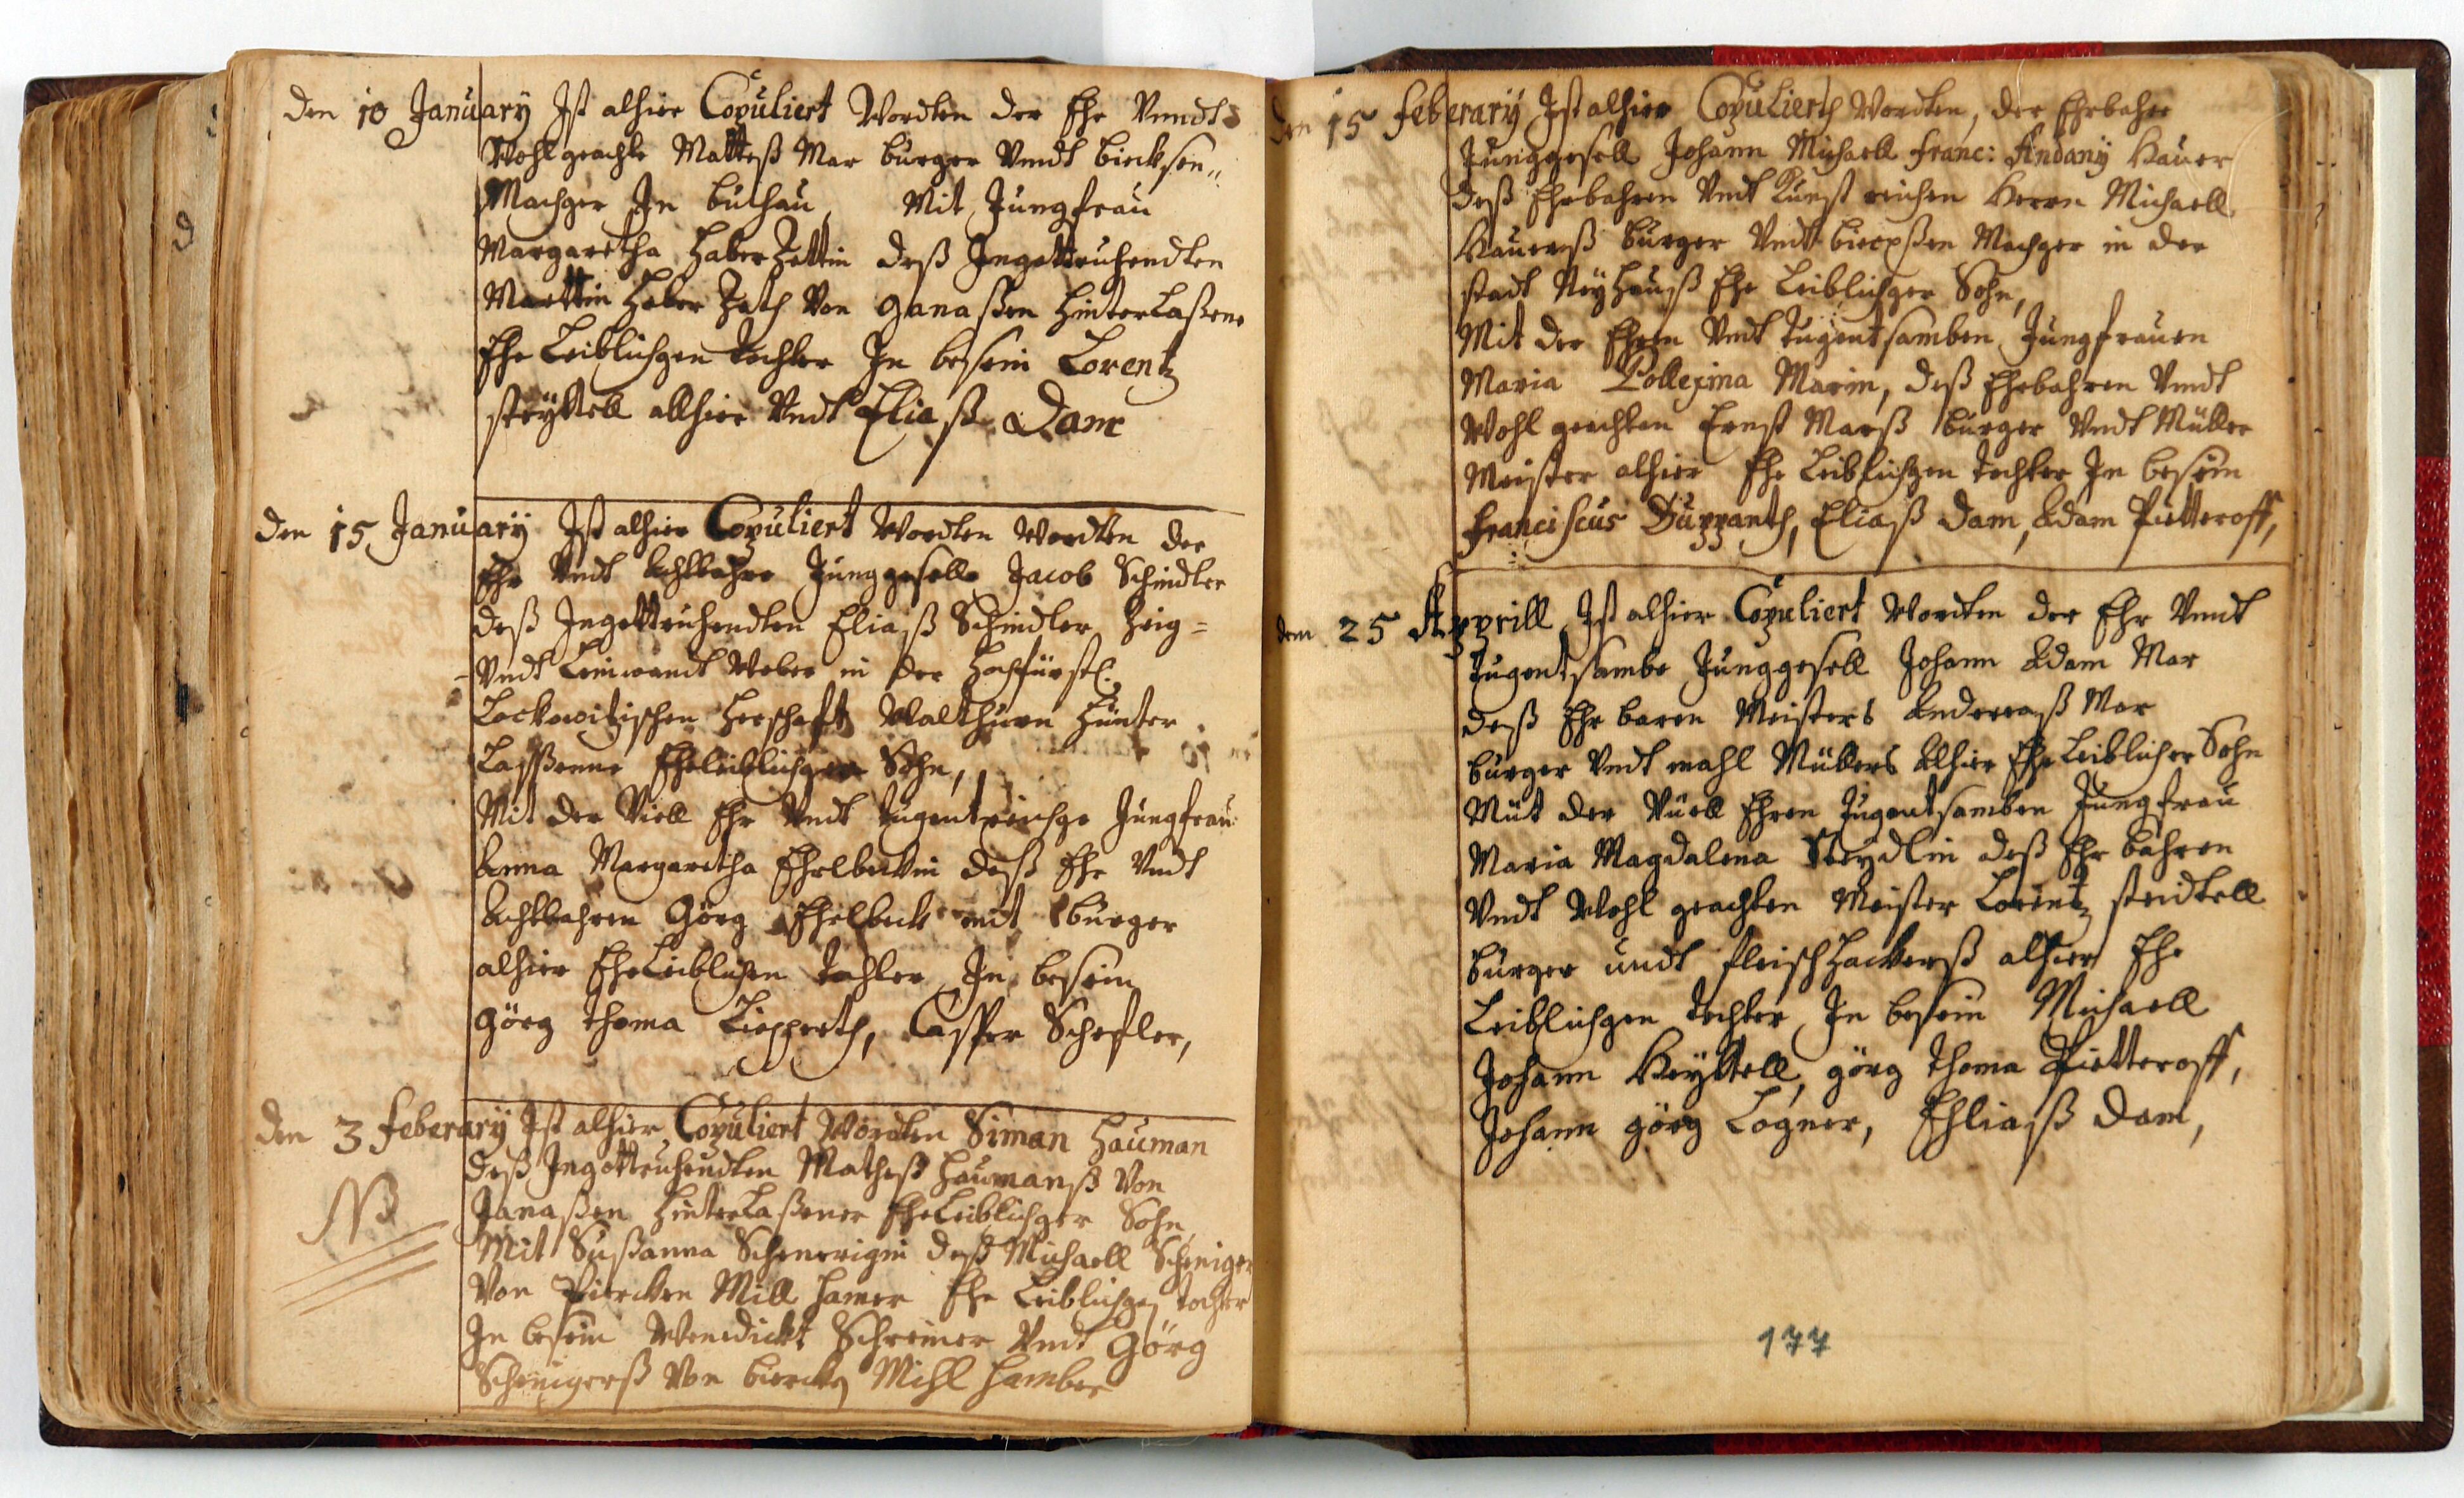 Den 10 January Ist alhier Copuliert Wordten der Ehr Vnndt
Wohlgeachte Matteß Mar burger Vndt bicksen„
Machger In buchau, Mit Jungfrau
Margaretha Haberzettin deß Ingottruhendten
Marttin Haber Zeth Von ganaßen Hinterlaßene
Ehe Leiblichgen tochter In bessein Lorentz
streyttell allhier Vndt Eliaß Dam
Den 15 January Ist alhier Copuliert Wordten Wordten der
Ehr Vndt Achtbahre Junggeselle Jacob Schindler
deß Ingottruhendten Eliaß Schindler Zeig=
Vndt Leinwandt Weber in der Hochfürstl:
Lockowitzischen Herschafft Walthurn Hünter
Lassßenne Eheleiblichger Sohn,
Mit der Viell Ehr Vndt tugentreichge Jungfrau
Anna Margaretha Ehelbeckin deß Ehr Vndt
Achtbahren Görg Ehelbeck mit burger
alhier EheLeiblichen tochter In bessein
Görg thoma Lippperth, Casper Schefler,
Den 3 feberary Ist alhier Copuliert Wordten Siman Hauman
deß Ingottruhendten Matheß Haumanß Von
Janaßen HinterLaßener EheLeiblichger Sohn
NB
Mit Sußanna Schenerigin deß Michaell Scheniger
Von Piercken Mill hamer Ehe Leiblichgen tochter
In bessein Wenedickt Schreiner Vndt Görg
Schenigerß Von bircken Mihl hamber
Den 15 feberary Ist alhier Copulierth Wordten, der Ehrbahre
Junggesell Johann Michaell franc: Andany Hauer
deß Ehrbahren Vndt Kunst reichen Herrn Michaell
Hauerß burger Vndt Machger in der
stadt Neyhauß Ehe Leiblichger Sohn,
Mit der Ehren Vndt tugentsamben Jungfrauen
Maria Pollexina Marin, deß Ehrbahren Vndt
Wohl geachten Ernst Marß burger Vndt Müller
Meister alhier Ehe Leiblichgen tochter In bessein
franciscus Duppanth, Eliaß Dam, Adam Pietteroff,
dem 25 Apprill Ist alhier Copuliert Wordten der Ehr Vndt
tugentsambe Junggesell Johann Adam Mar
deß Ehr baren Meisters Anderraß Mar
burger Vndt mahl Müllers Alhier Ehe Leiblicher Sohn
Müt der Vüell Ehren Jugentsamben Jungfrau
Maria Magdalena Steydlin deß Ehr bahren
Vndt Wohl geachten Meister Lorentz steidtell
burger undt fleischhackerß alhier Ehe
Leiblichgen tochter In bessein Michaell
Johann Keyttell, görg thoma Pietteroff,
Johann görg Logner, Ehliaß Dam,
177